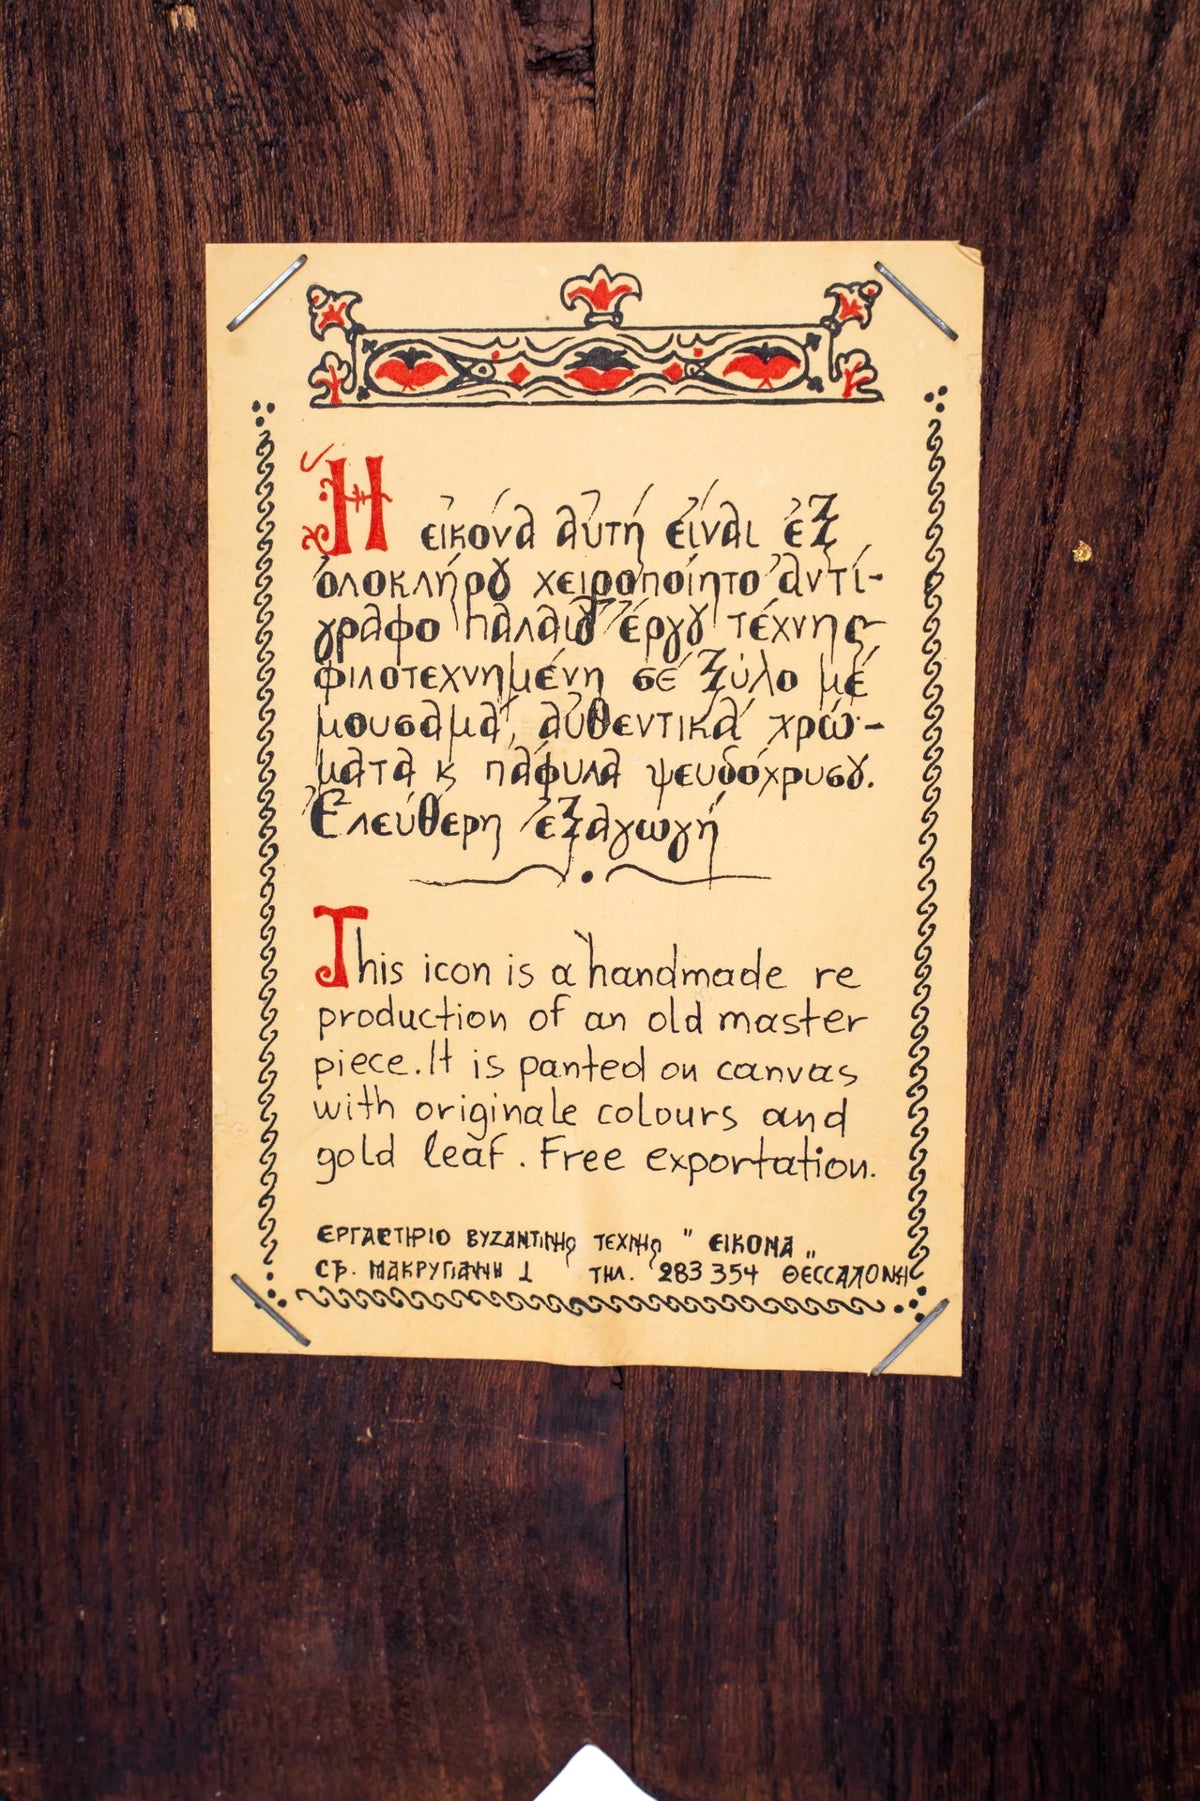 Ἡ εἰκόνα αὐτή εἶναι ἐξ
ὁλοκλήρȣ χειροποίητο ἀντί-
γραφο παλαιȣ͂ ἔργȣ τέχνης
φιλοτεχνημένη σέ ξύλο μέ
μουσαμά, αὐθεντικά χρώ-
ματα κ πάφυλα ψευδόχρυσȣ.
Ἐλεύθερη ἐξαγωγή
This icon is a handmade re
production of an old master
piece. It is panted on canvas
with originale colours and
gold leaf. Free exportation.
ΕΡΓΑΣΤΗΡΙΟ ΒΥΖΑΝΤΙΝΗΣ ΤΕΧΝΗΣ " ΕΙΚΟΝΑ „
ΣΤΡ. ΜΑΚΡΥΓΙΑΝΝΗ 1 ΤΗΛ. 283 354 ΘΕΣΣΑΛΟΝΙΚΗ